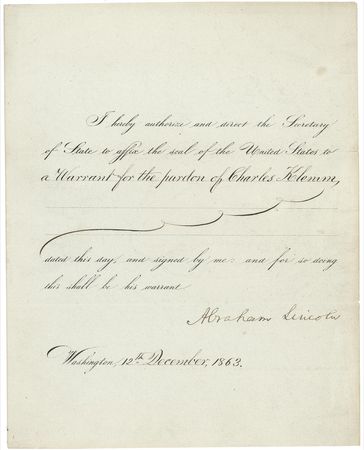 I hereby authorize and direct the Secretary
of State to affix the seal of the United States to
a Warrant for the pardon of Charles Klemm,
dated this day, and signed by me: and for so doing
this shall be his warrant
Abraham Lincoln
Washington, 12th December, 1863.